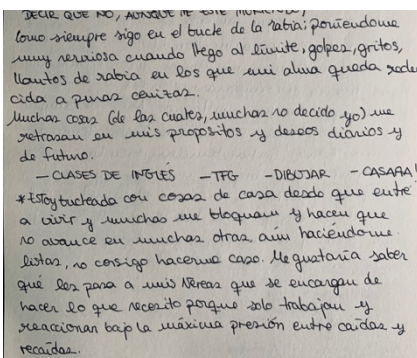 DECIR QUE NO, AUNQUE ME ESTÉ
Como siempre sigo en el bucle de la rabia; poniéndome
muy nerviosa cuando llego al límite, golpes, gritos,
llantos de rabia en los que mi alma queda redu
cida a puras cenizas.
Muchas cosas (de las cuales, muchas no decido yo) me
retrasan en mis propósitos y deseos diarios y
de futuro.
- CLASES DE INGLÉS - TFG - DIBUJAR - CASARA!
*Estoy bucleada con cosas de casa desde que entré
a vivir y muchas me bloquean y hacen que
no avance en muchas otras, aún haciéndome
listas, no consigo hacerme caso. Me gustaría saber
qué les pasa a mis Nereas que se encargan de
hacer lo que necesito porque solo trabajan y
reaccionan bajo la máxima presión entre caídas y
recaídas.